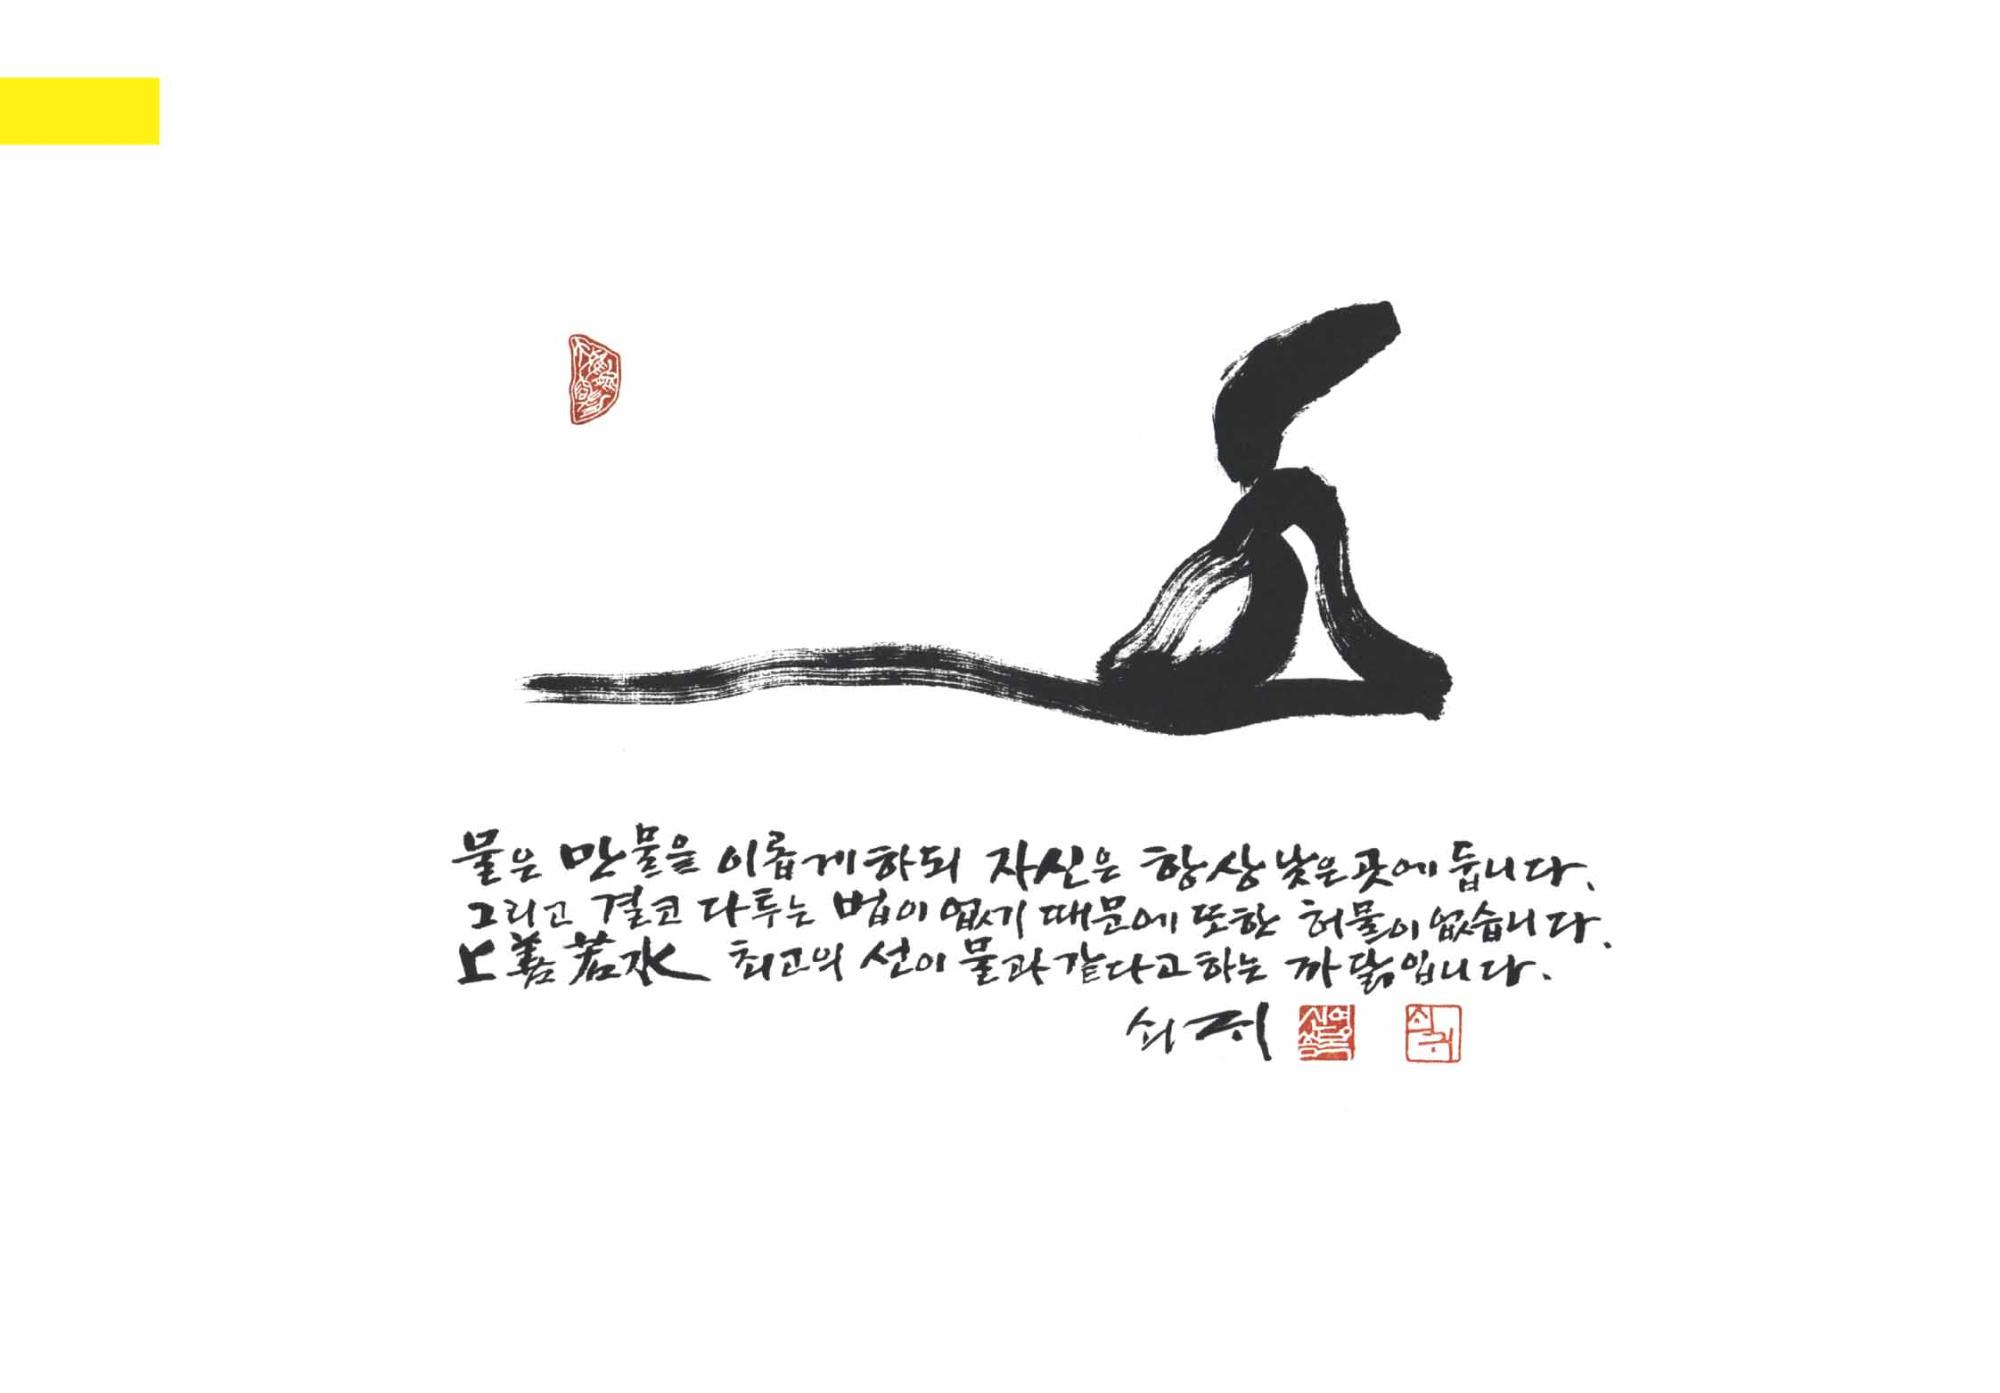 물은 만물을 이롭게하되 자신은 항상 낮은곳에 둡니다.
그리고 결코 다투는 법이 없기 때문에 또한 허물이 없습니다.
上善若水 최고의 선이 물과같다고하는 까닭입니다.
쇠귀
쇠귀